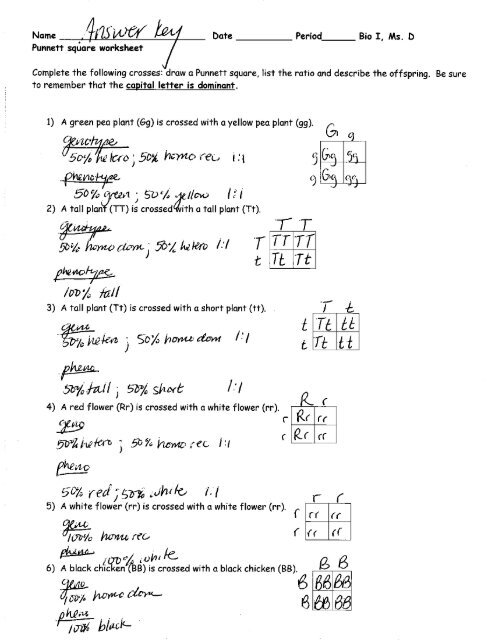 Name Answer Key Date Period Bio I, Ms. D
Punnett square worksheet
Complete the following crosses: draw a Punnett square, list the ratio and describe the offspring. Be sure
to remember that the capital letter is dominant.
1) A green pea plant (Gg) is crossed with a yellow pea plant (gg).
G g
genotype
50% hetero; 50% homo rec 1:1
g Gg gg
phenotype
g Gg gg
50% green; 50% yellow 1:1
2) A tall plant (TT) is crossed with a tall plant (Tt).
T T
genotype
50% homo dom; 50% hetero 1:1
T TT TT
t Tt Tt
phenotype
100% tall
3) A tall plant (Tt) is crossed with a short plant (tt).
T t
geno
t Tt tt
50% hetero; 50% homo dom 1:1
t Tt tt
pheno
50% tall; 50% short 1:1
4) A red flower (Rr) is crossed with a white flower (rr).
R r
geno
r Rr rr
50% hetero; 50% homo rec 1:1
r Rr rr
pheno
50% red; 50% white 1:1
5) A white flower (rr) is crossed with a white flower (rr).
r r
geno
r rr rr
100% homo rec
r rr rr
pheno
100% white
6) A black chicken (BB) is crossed with a black chicken (BB).
B B
geno
B BB BB
100% homo dom
B BB BB
pheno
100% black